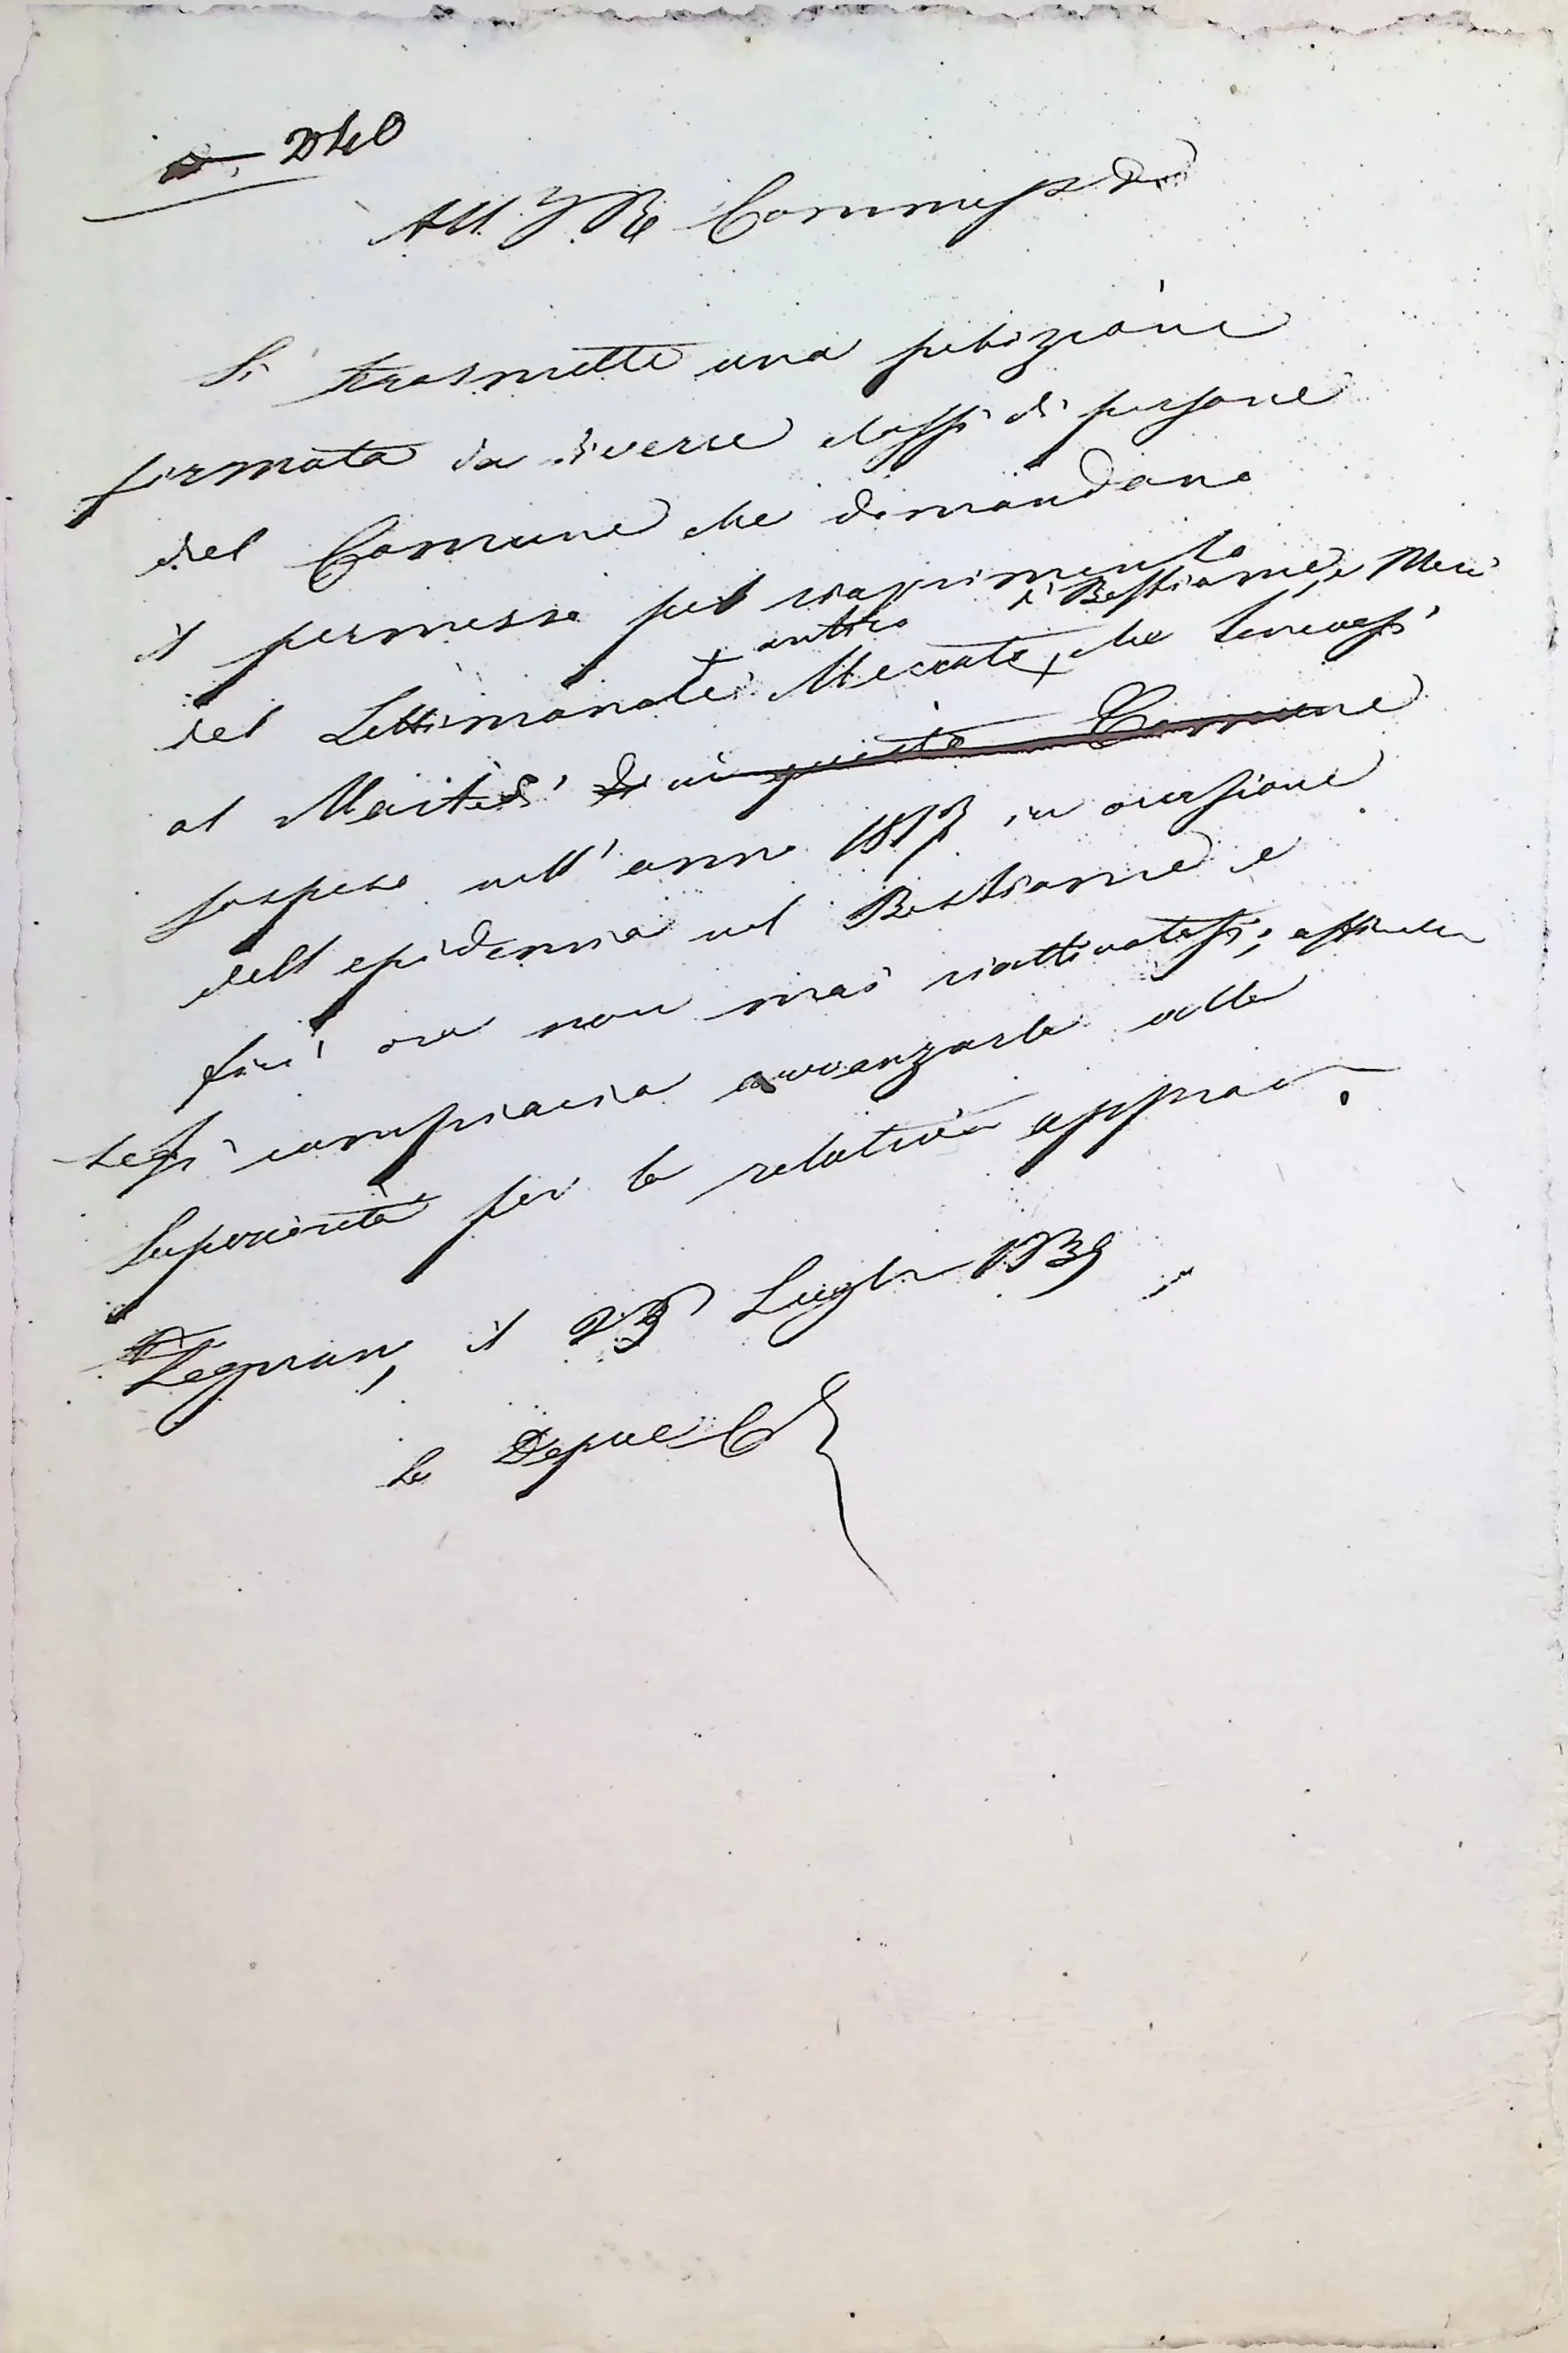 240
All I. R. Commiss.
Si trasmette una petizione
firmata da diverse classi di persone
del Comune che dimandano
il permesso pel riaprimento
antico di Bestiame, e Merci
del Settimanale Mercato che tenevasi
al Martedì in questo Comune
sospeso nell'anno 18 in occasione
dell epidemia nel Bestiame e
fin' ora non mai riattivatosi;
compiacia avvanzarla alla
Superiorità per la relativa approv.
Legnano, il 2 Luglio 1839
La Depue C